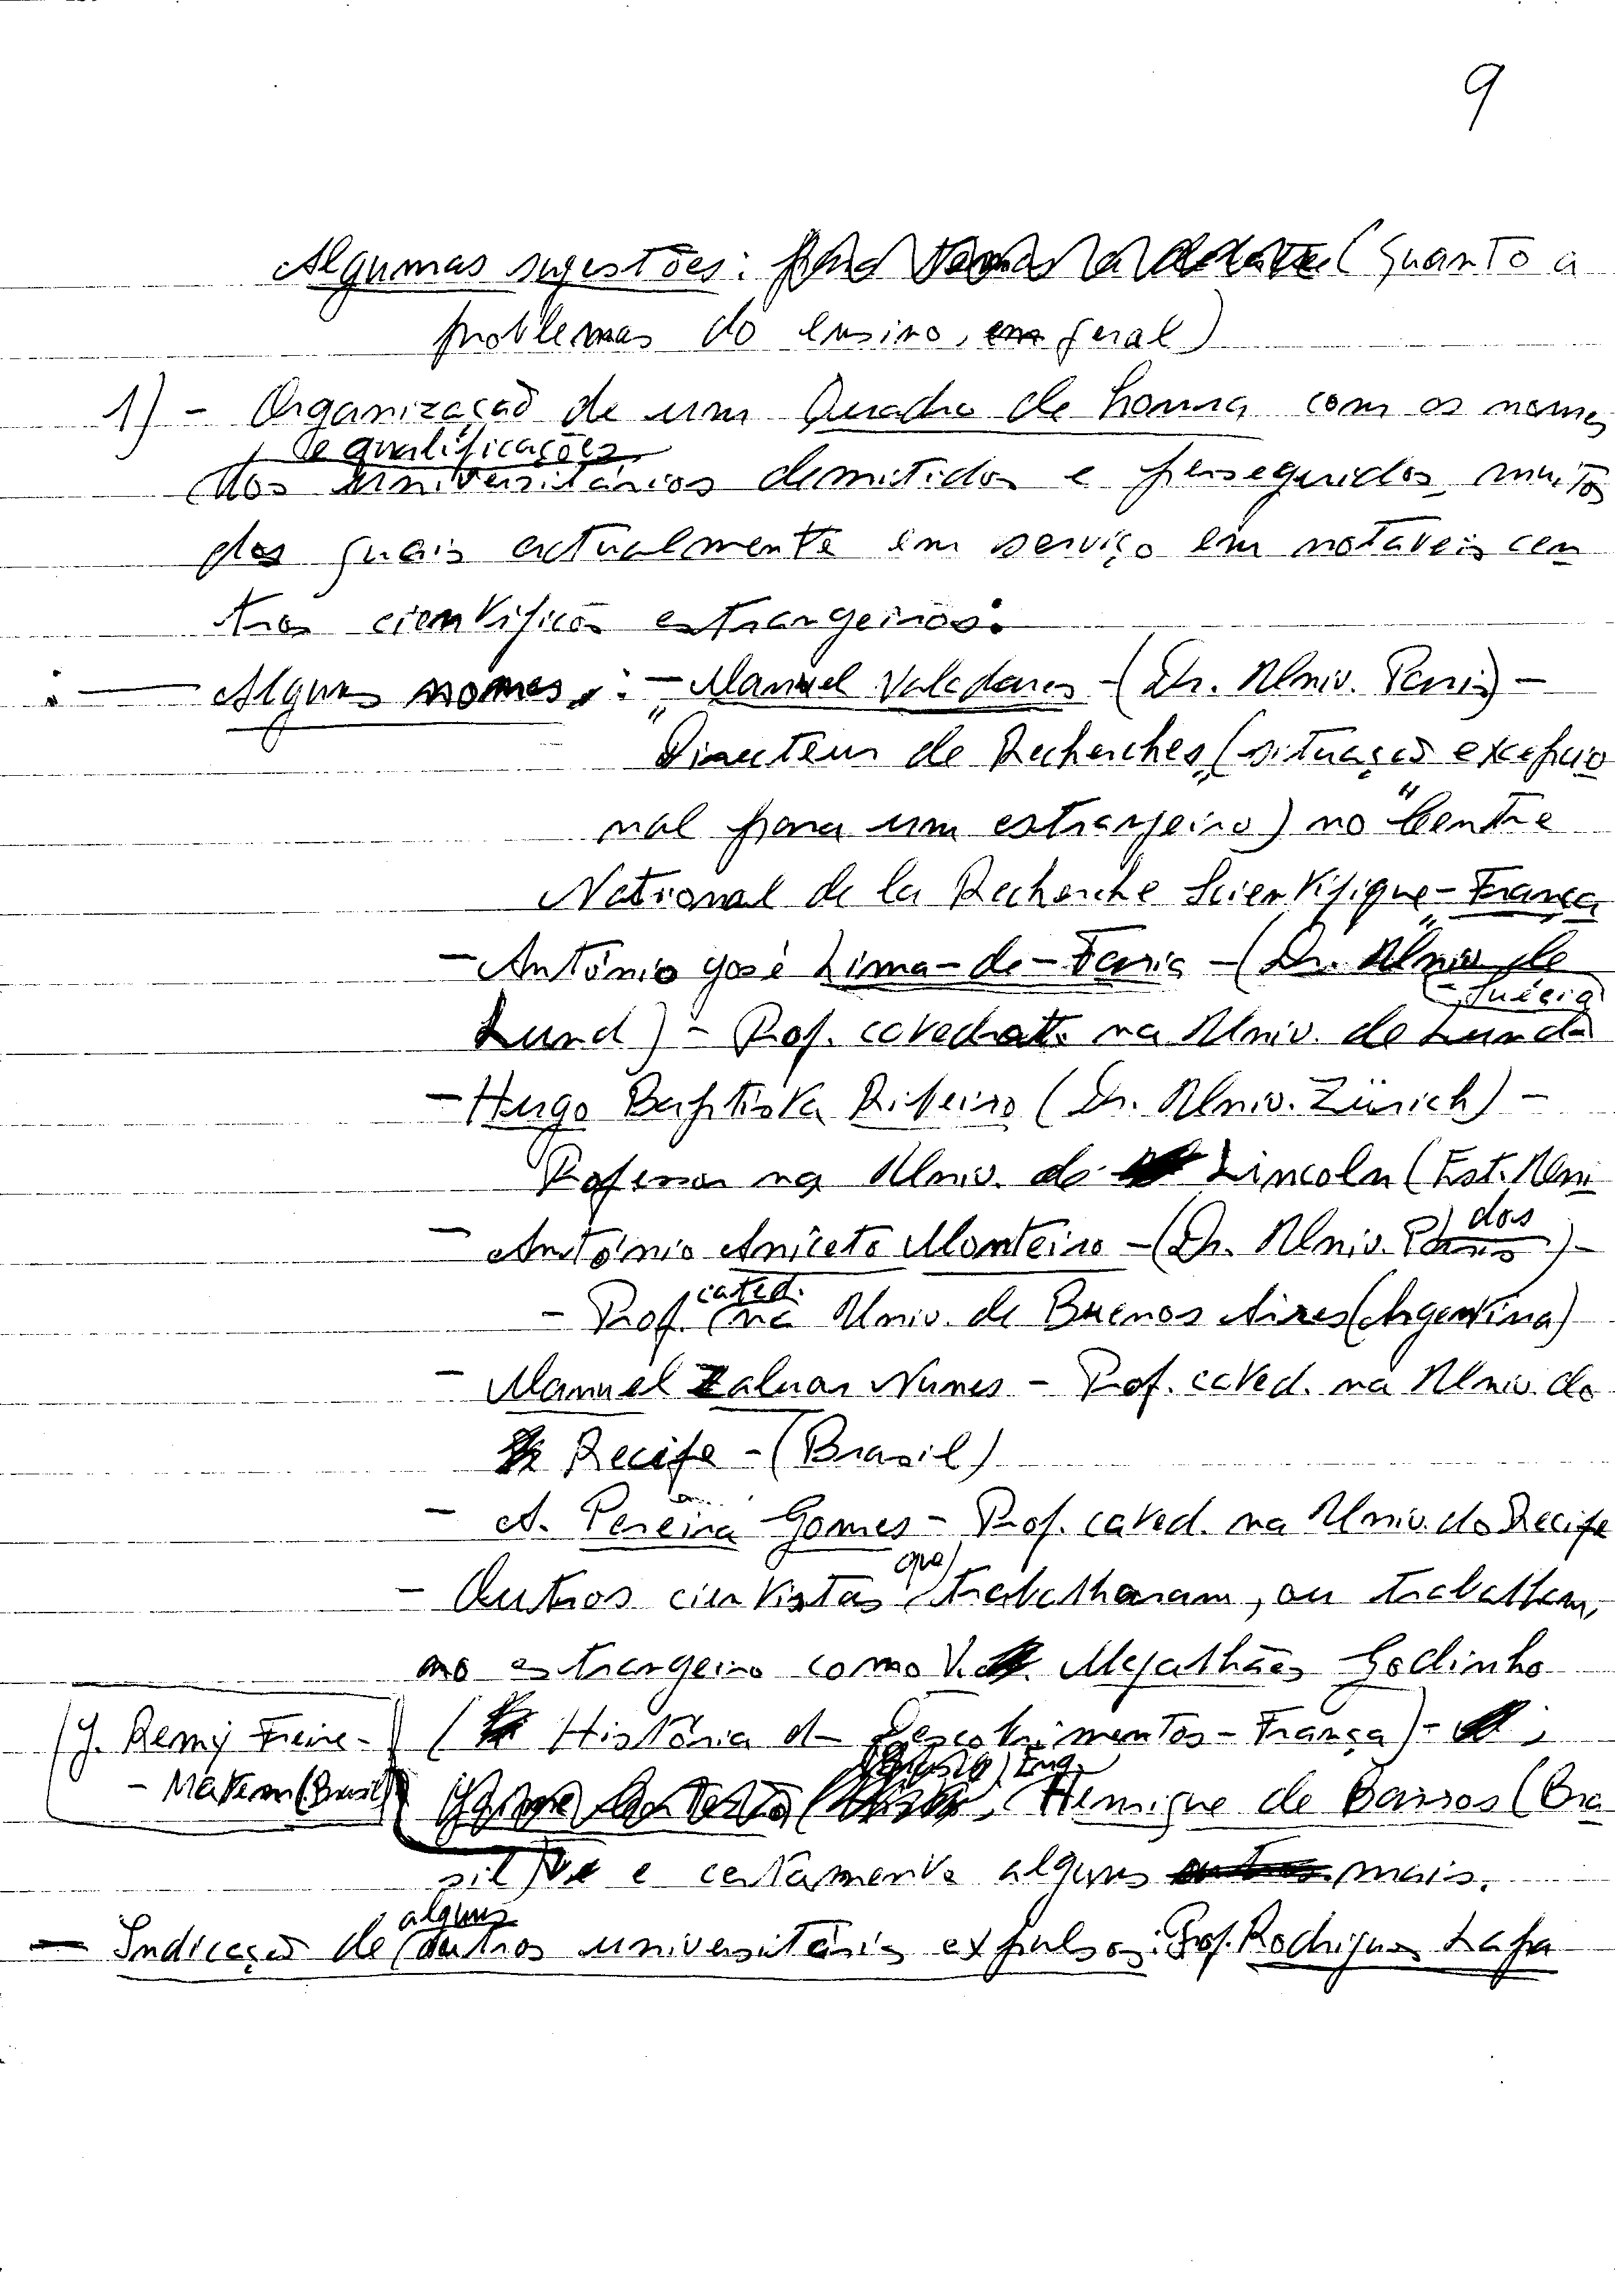 9
Algumas sugestões: (Quanto a
problemas do ensino, em geral)
1) - Organização de um Quadro de honra com os nomes
e qualificações
dos universitários demitidos e perseguidos, muitos
dos quais actualmente em serviço em notáveis cen
tros científicos estrangeiros:
: — Alguns nomes: - Manuel Valadares - (Dr. Univ. Paris) -
"Directeur de Recherches" (situação excepcio
nal para um estranjeiro) no "Centre
National de la Recherche Scientifique" - França
- António José Lima-de-Faria - (Dr. Univ de
- Suécia
Lund) - Prof. catedrat. na Univ. de Lund
- Hugo Baptista Ribeiro (Dr. Univ. Zürich) -
Professor na Univ. de Lincoln (Est. Uni
dos)
- António Aniceto Monteiro - (Dr. Univ. Paris) -
cated.
- Prof. na Univ. de Buenos Aires (Argentina)
- Manuel Zaluar Nunes - Prof. cated. na Univ. do
Recife - (Brasil)
- A. Pereira Gomes - Prof. cated. na Univ. do Recife
que
- Outros cientistas trabalharam, ou trabalham,
no estrangeiro como V. Magalhães Godinho
(J. Remy Freire - (História d- Descobrimentos - França) - ;
- Matem (Brasil) Eng. Henrique de Barros (Bra
sil) e certamente alguns mais.
alguns
— Indicação de outros universitários expulsos: Prof. Rodrigues Lapa